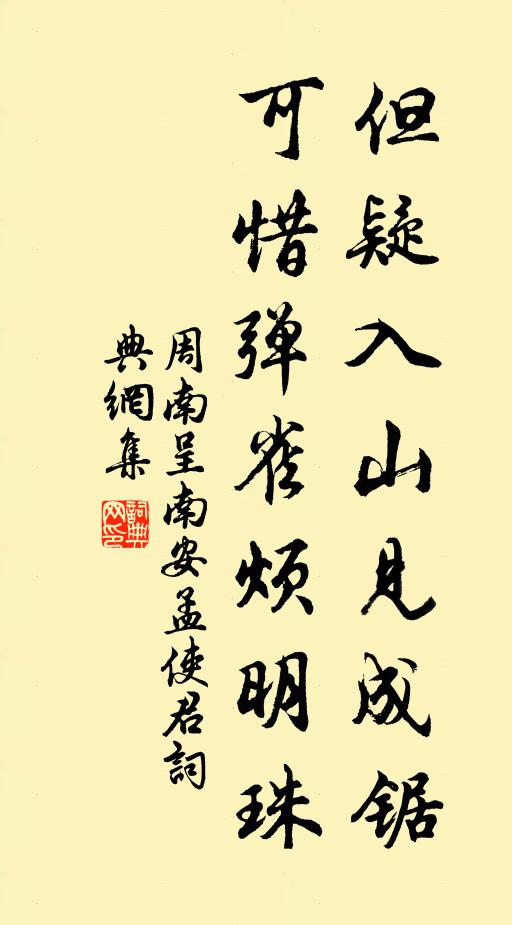 但疑入山見成锯
可惜弹雀烦明珠
周南呈南安孟使君詞
典網集
詞典网印